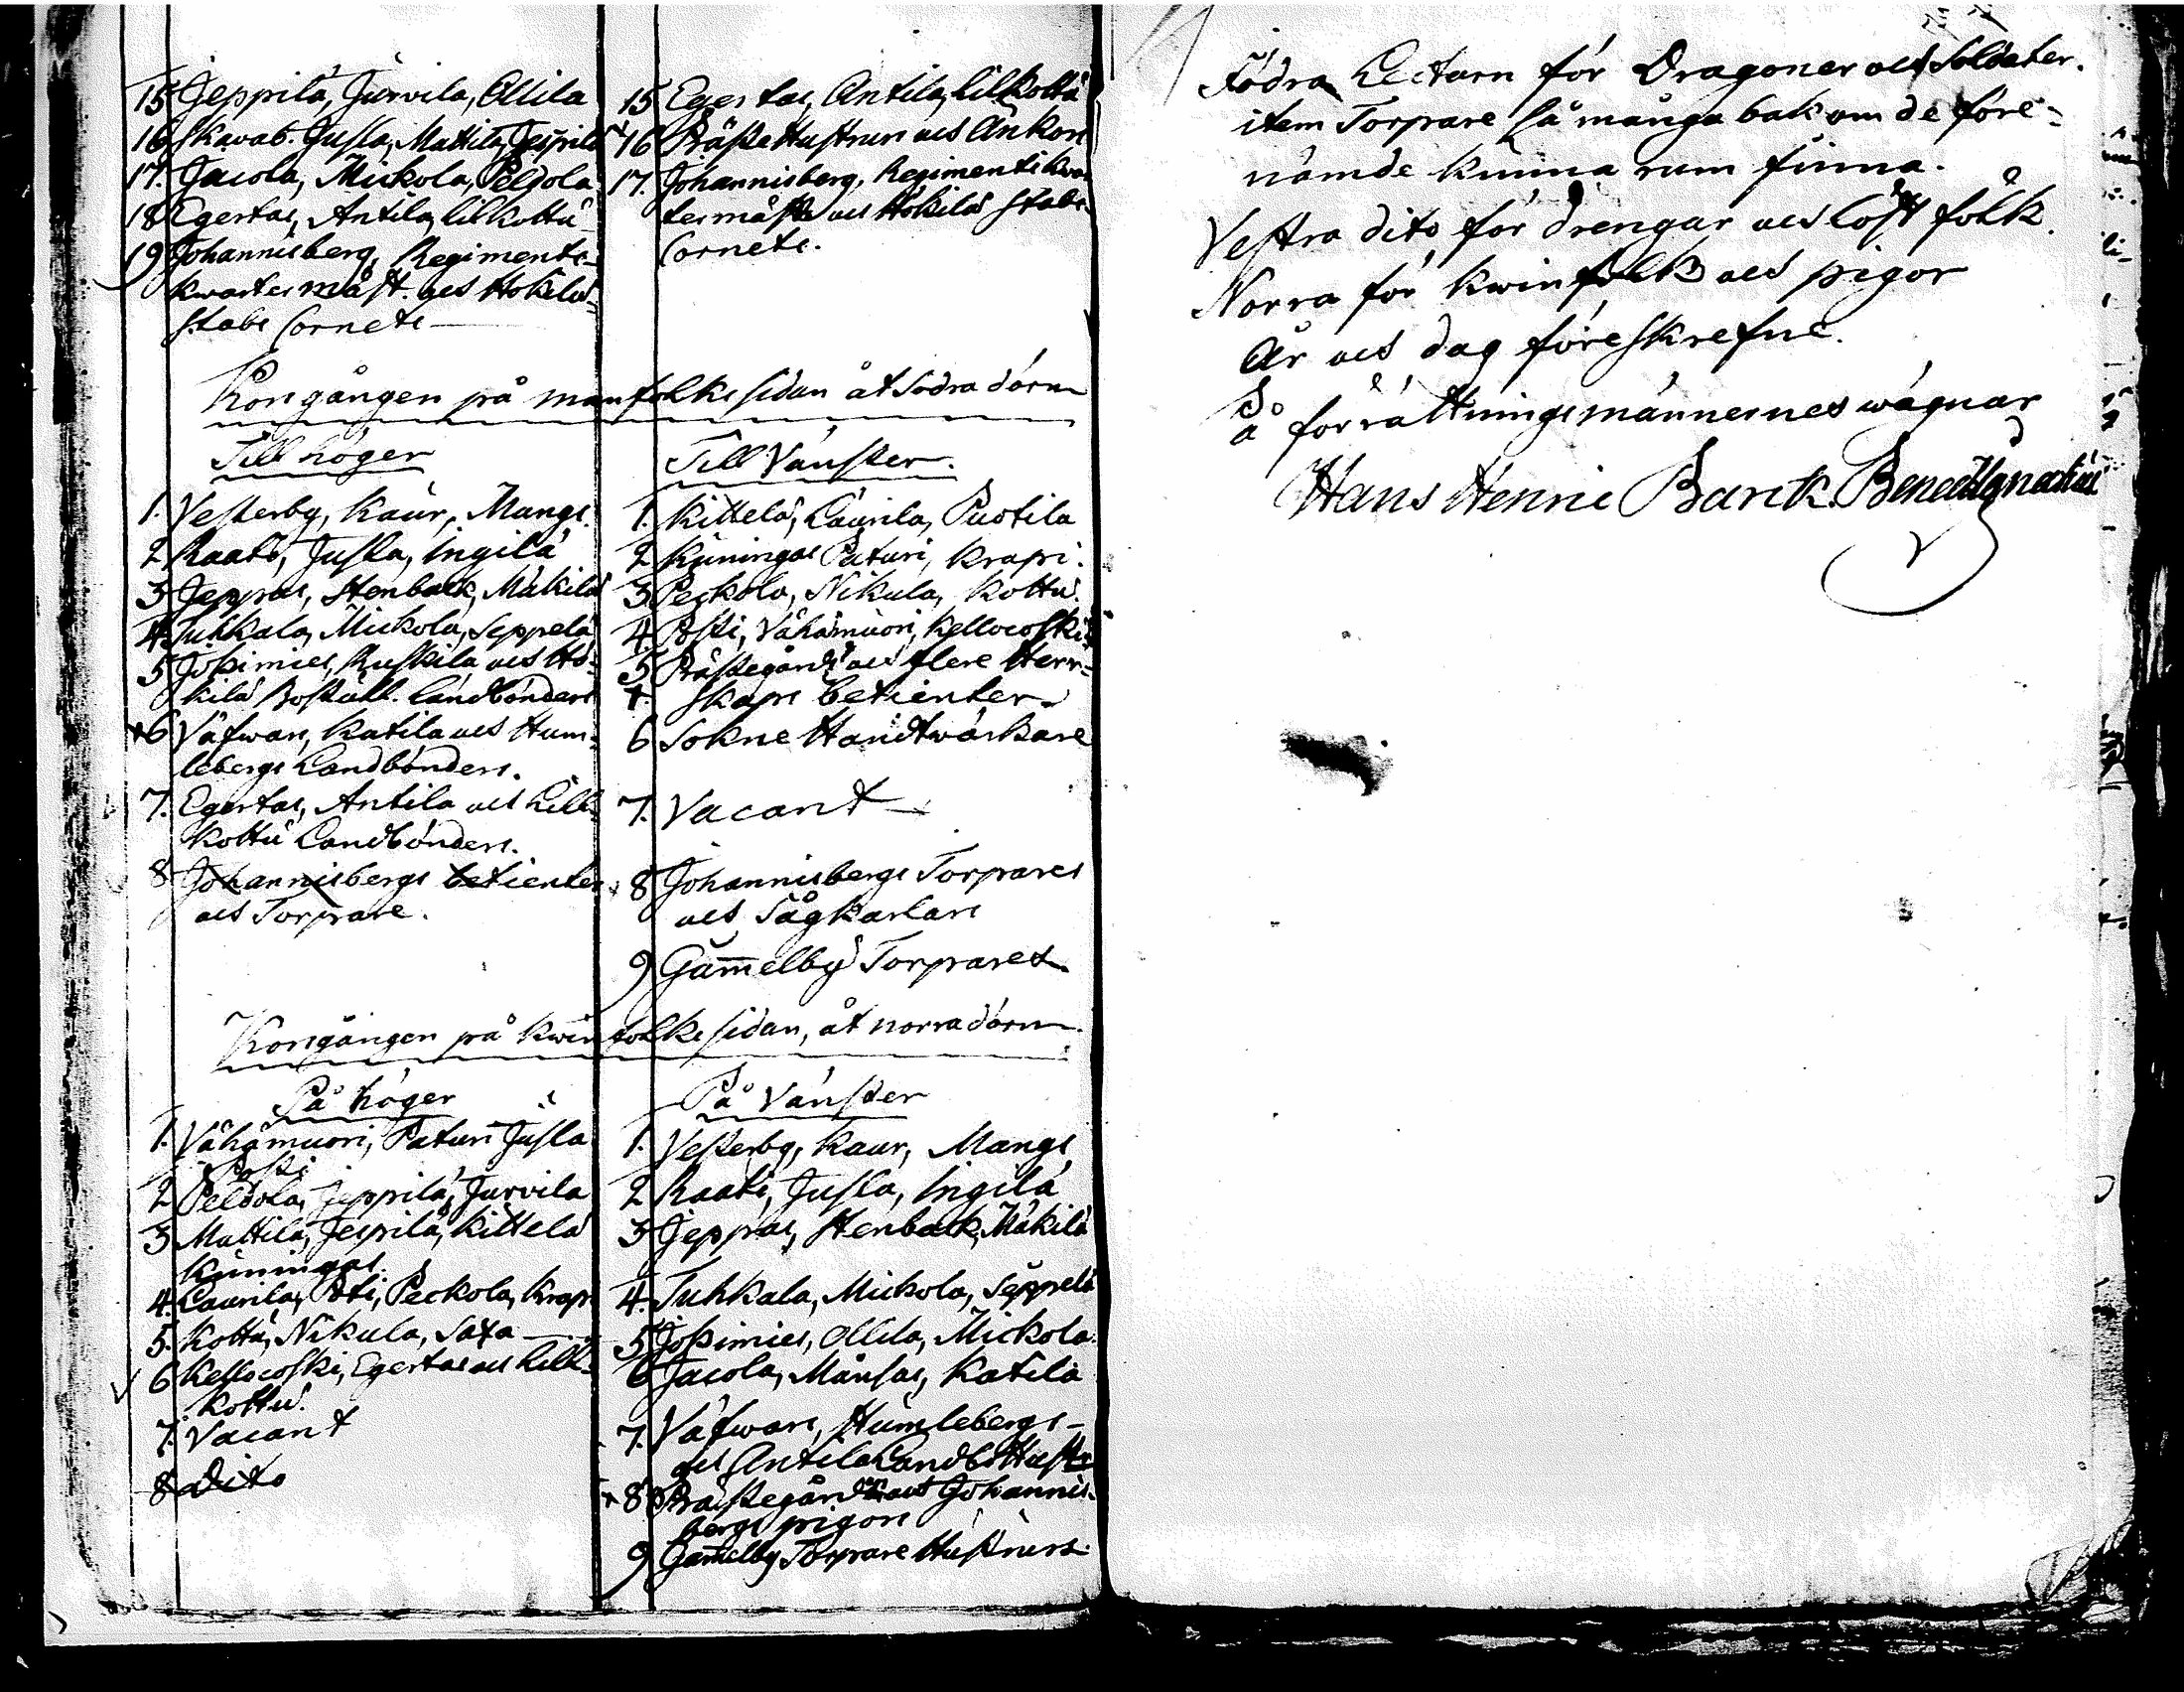 15 Jeppilä, Jurvila, Ollila
16 Skavab. Jusla, Mattila, Jespilä
17. Jacola, Mickola, Peldola
18 Egertas, Antila, Lilkottü
19 Johannisberg, Regimentz-
kvartermäst. och Hökilä
stabs Cornets
15 Egertas, Antila, Lilkottü
16 Prästehustrun och Änkors
17. Johannisberg, Regiments kvar
termäst och Hökilä stabs
Cornets.
Korsgången på manfolks sidan åt södra dörn
Till höger
1. Vesterby, Kaur, Mangs.
2 Raate, Jusla, Ingilä
3 Jeppas, Stenback, Mäkilä
4. Tuhkala, Mickola, Seppelä
5 Jokimies, Ruskila och Hö-
kilä Boställ. Landbönders
6 Väfwars, Katila och Hum-
lebergs Landbönders.
7. Egertas, Antila och Lill
kottü Landbönders.
8 Johannisbergs betienter
och Torpare.
Till Vänster.
1. Kittelä, Laurila, Puotila
2 Kuningas Paturi, Krapi.
3 Peckola, Nikula, Kottü.
4 Posti, Vähämuori, Kellocoski
5 Prästegårds och flere Herr-
skaps betienter
6 Sokne Handtwärkare
7. Vacant
8 Johannisbergs Torpares
och Sågkarlars
9 Gam̅elby Torpares
Korsgången på Kwinfolks sidan, åt norra dörn
På höger
1. Vähämuori, Paturi Jusla
Posti
2 Peldola, Jeppilä, Jurvila
3 Mattila, Jespilä, Kittelä
Kuningas.
4. Laurila, Poti, Peckola, Krapi
5. Kottü, Nikula, Saxa
6 Kellocoski, Egertas och Lill-
kottü.
7. Vacant
8 dito
På Vänster
1. Vesterby, Kaur, Mangs
2 Raate, Jusla, Ingilä
3 Jeppas, Stenback, Mäkilä
4. Tuhkala, Mickola, Seppelä
5 Jokimies, Ollila, Mickola.
6 Jacola, Månsas, Katila
7. Väfwars, Humlebergs-
och Antila Landbo Hustr
8 Prästegårds och Johannis-
bergs pigors
9 Gam̅elby Torpare Hustrurs
Södra Lectarn för Dragoner och Soldater.
item Torpare så många bakom de före-
nämde kunna rum finna.
Vestra dito för drengar och löst folk.
Norra för kwinfolk och pigor
År och dag föreskrefne.
På förrättningsmännernes wägnar
Hans Henric Barck. Bened Ignatius